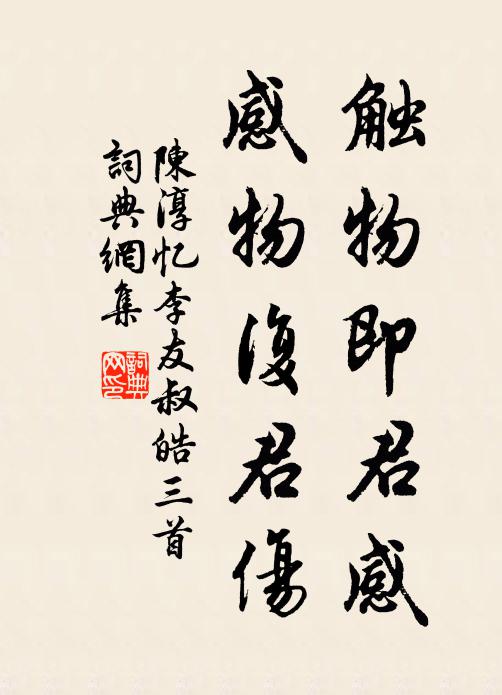 触物即君感
感物復君傷
陳淳忆李友叔皓三首
詞典網集
詞典网印